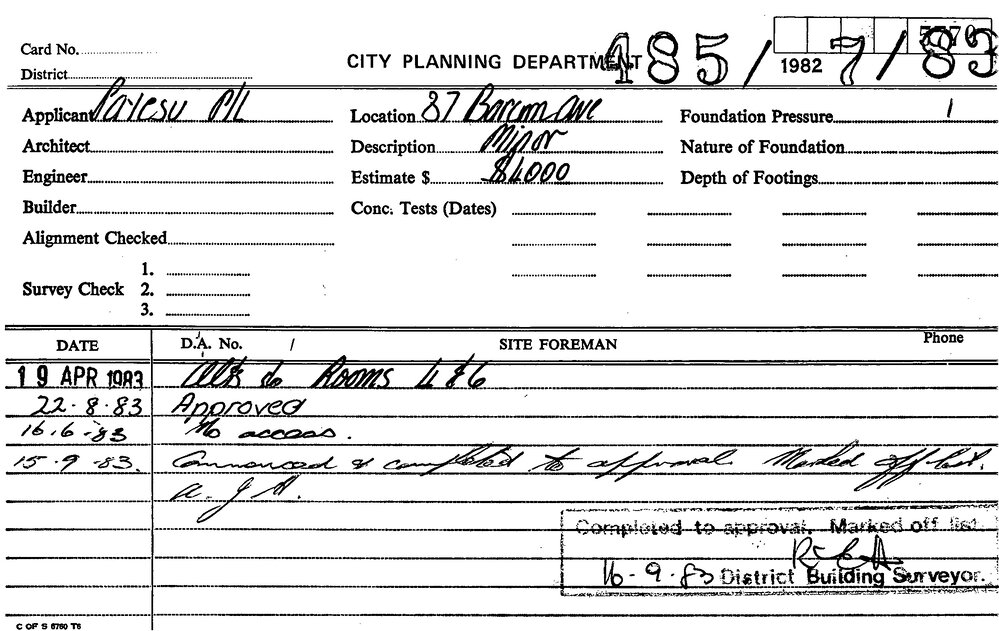 Card No.
District
CITY PLANNING DEPARTMENT
1982
485/7/83
Applicant P/L
Location 87 Ave
Foundation Pressure
Architect
Description Minor
Nature of Foundation
Engineer
Estimate $ $4000
Depth of Footings
Builder
Conc. Tests (Dates)
Alignment Checked
Survey Check
1.
2.
3.
DATE D.A. No. / SITE FOREMAN Phone
19 APR 1983 Alts to Rooms 4 & 6
22.8.83 Approved
16.6.83 No access.
15.9.83. Commenced & completed to approval. Marked off list.
A. J. H.
Completed to approval. Marked off list.
16-9-83 District Building Surveyor.
C OF S 6760 T6